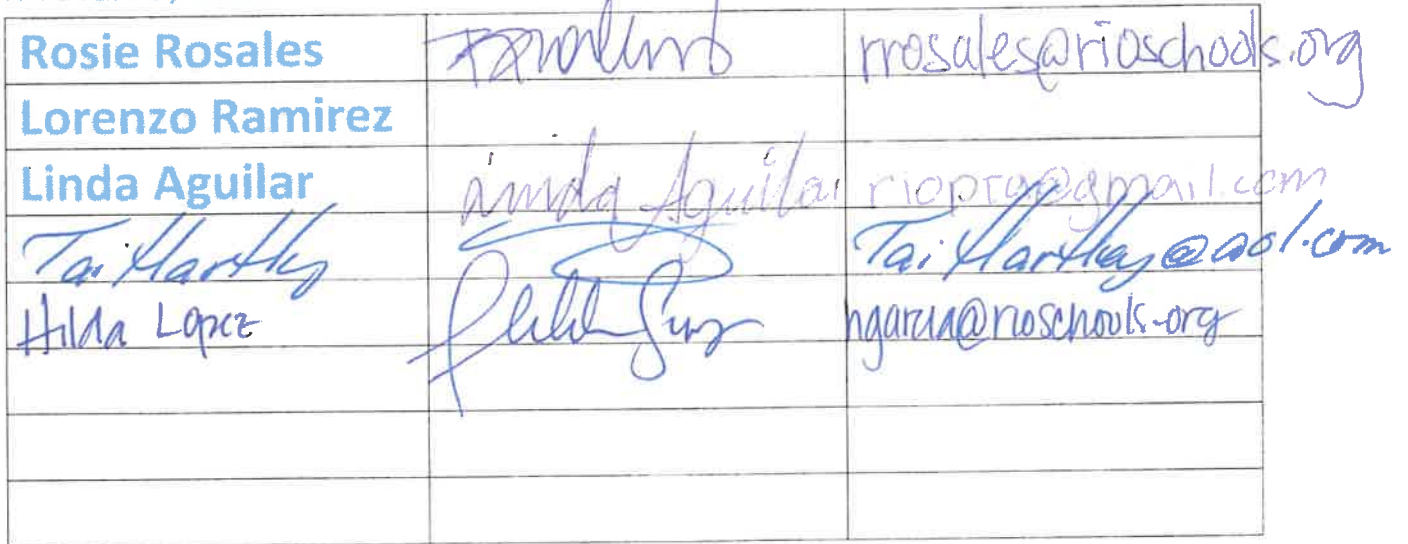 Rosie Rosales rrosales@rioschools.org
Lorenzo Ramirez
Linda Aguilar Linda Aguilar riopta@gmail.com
Tai Hartley TaiHartley@aol.com
Hilda Lopez hgarcia@rioschools.org